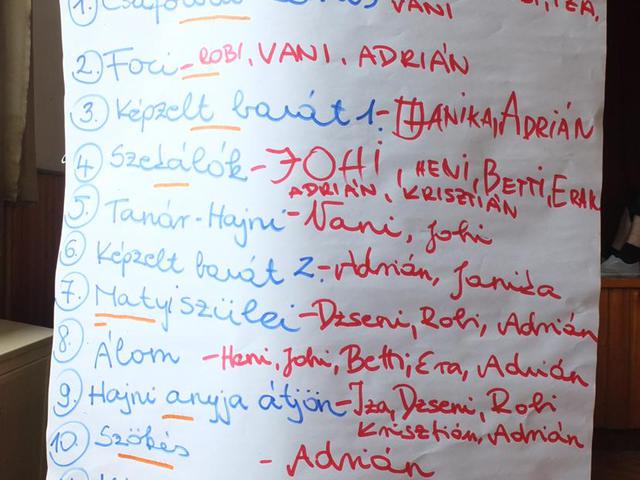 1. VANI
2. Foci - ROBI, VANI, ADRIÁN
3. Képzelt barát 1. - DANIKA, ADRIÁN
4. Szekálók - JOHI, HENI, BETTI, ERAK
ADRIÁN, KRISZTIÁN
5. Tanár-Hajni - Vani, Johi
6. Képzelt barát 2. - Adrián, Janika
7. Matyi szülei - Dzseni, Robi, Adrián
8. Álom - Heni, Johi, Betti, Era, Adrián
9. Hajni anyja átjön - Iza, Dzseni, Robi
Krisztián, Adrián
10. Szökés - Adrián